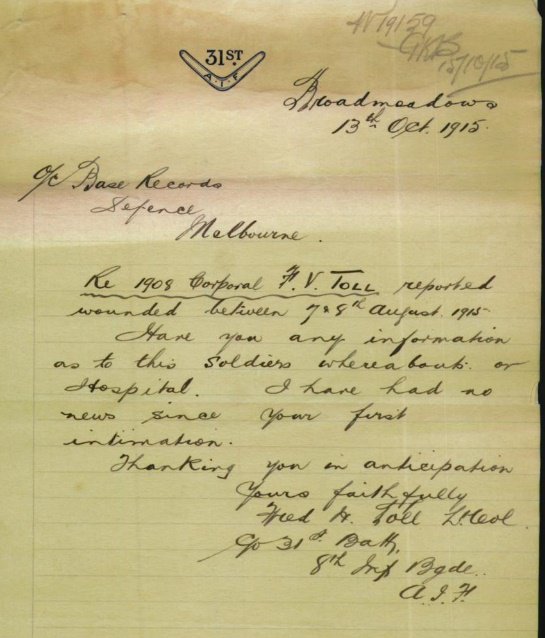 W19159
GKB
15/10/15
31ST
A.I.F
Broadmeadows
13th Oct. 1915.
O/C Base Records
Defence
Melbourne.
Re 1908 Corporal F. V. TOLL reported
wounded between 7 & 8th August. 1915
Have you any information
as to this soldiers whereabouts or
Hospital. I have had no
news since your first
intimation.
Thanking you in anticipation
Yours faithfully
Fred W. Toll Lt Col.
Co 31st Batt,
8th Inf Bgde.
A.I.F.